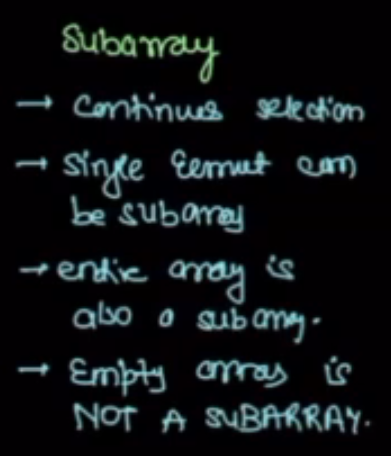 Subarray
→ Continues selection
→ Single Eemut can
be subarray
→ entire array is
also a subarray.
→ Empty array is
NOT A SUBARRAY.